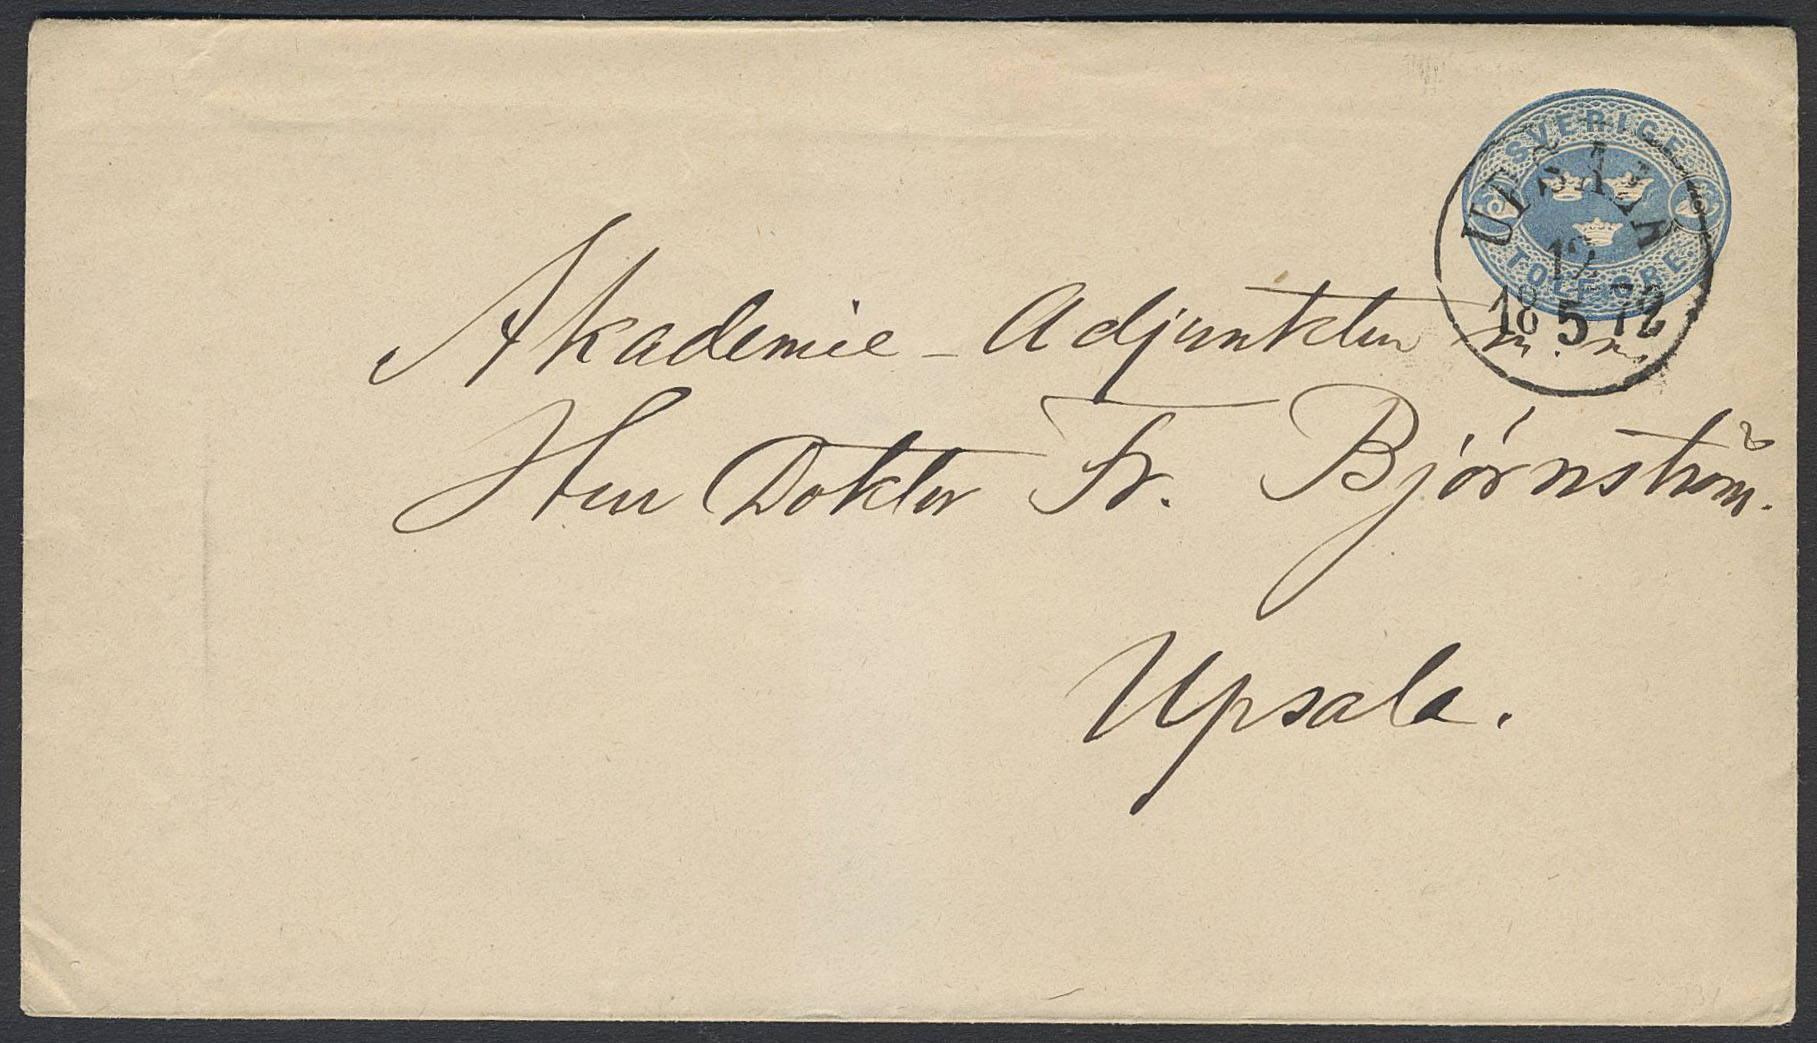 SVERIGE
TOLF ÖRE
UPSALA
12
18 5 72
Akademie-Adjunkten m. m.
Herr Doktor Fr. Björnström.
Upsala.